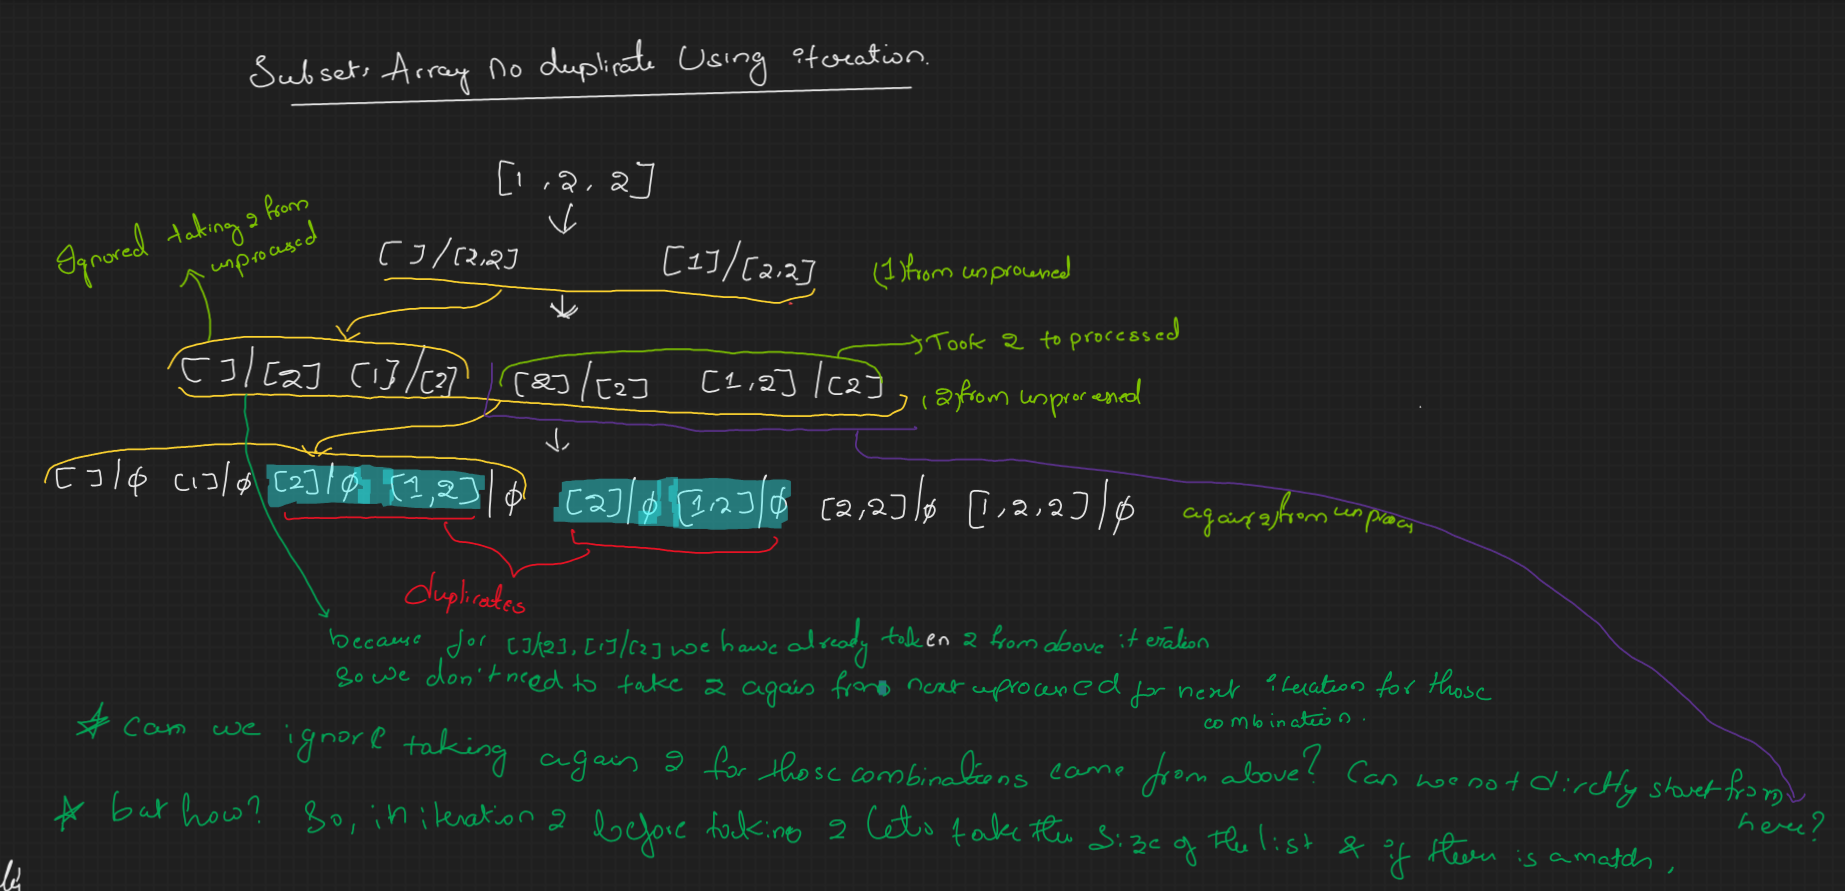 Subsets Array no duplicate Using iteration.
[1, 2, 2]
Ignored taking 2 from
unprocessed
[ ] / [2,2] [1] / [2,2] (1) from unprocessed
[ ] | [2] [1] / [2] [2] / [2] [1,2] | [2]
Took 2 to processed
(2) from unprocessed
[ ] | ϕ [1] | ϕ [2] | ϕ [1,2] | ϕ [2] | ϕ [1,2] | ϕ [2,2] | ϕ [1,2,2] | ϕ
again (2) from unproces
duplicates
because for [ ]/[2], [1]/[2] we have already taken 2 from above iteration
So we don't need to take 2 again from next uprocessed for next iteration for those
combination.
* Can we ignore taking again 2 for those combinations came from above? Can we not directly start from
here?
* but how? So, in iteration 2 before taking 2 let's take the size of the list & if there is a match,